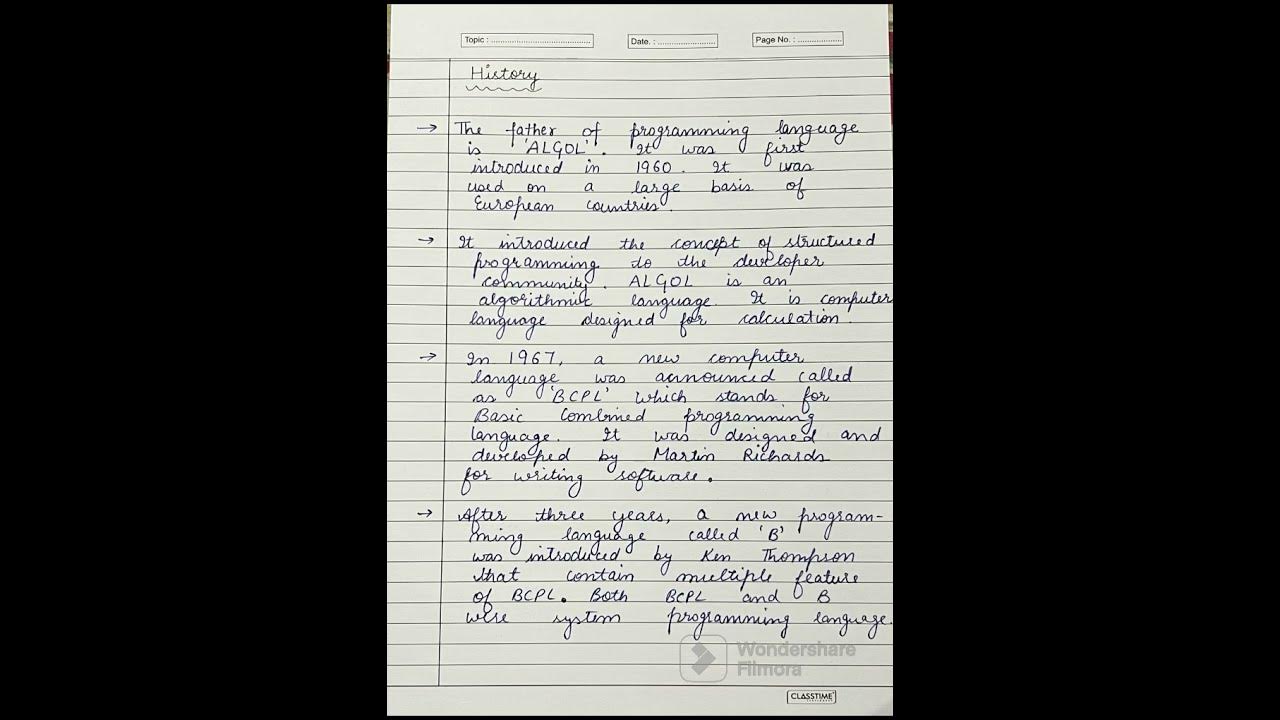 Topic : ........................................ Date. : ........................ Page No. : ..................
History
→ The father of programming language
is 'ALGOL'. It was first
introduced in 1960. It was
used on a large basis of
European countries.
→ It introduced the concept of structured
programming to the developer
community. ALGOL is an
algorithmic language. It is computer
language designed for calculation.
→ In 1967, a new computer
language was announced called
as 'BCPL' which stands for
Basic Combined programming
language. It was designed and
developed by Martin Richards
for writing software.
→ After three years, a new program-
ming language called 'B'
was introduced by Ken Thompson
that contain multiple feature
of BCPL. Both BCPL and B
were system programming language.
Wondershare
Filmora
CLASSTIME